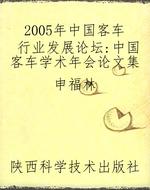 2005年中国客车
行业发展论坛:中国
客车学术年会论文集
申福林
陕西科学技术出版社